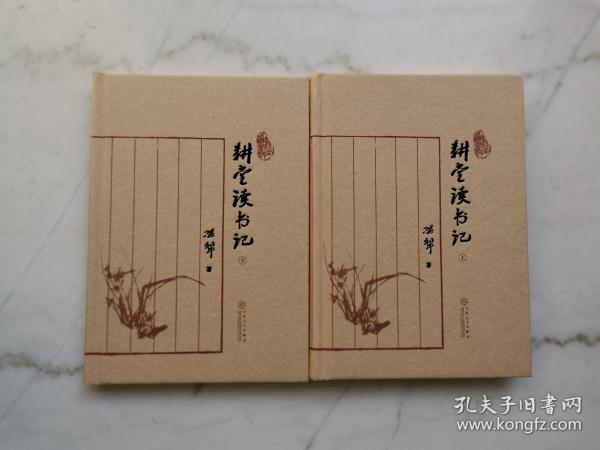 耕堂读书记
下
孙犁
著
耕堂读书记
上
孙犁
著
孔夫子旧书网
www.kongfz.com